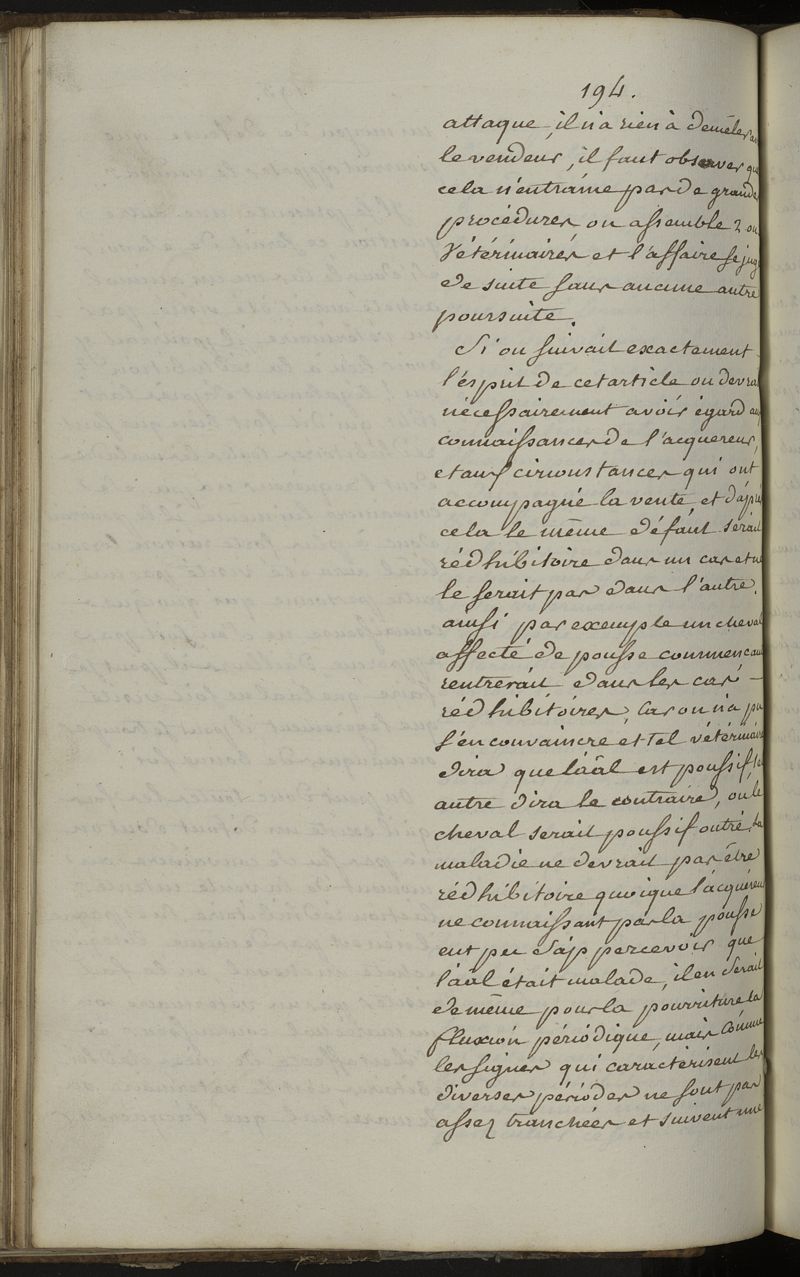 194.
attaque, il n'a rien à demêler
le vendeur, il faut observer que
cela n'entraine pas de grandes
procédures on assemble 2 ou
Vétérinaires et l'affaire se juge
de suite sans aucune autre
poursuite.
Si on suivait exactement
l'ésprit de cet article on devrai
nécessairement avoir égard au
connaissances de l'acquereur,
et aux circonstances qui ont
accompagné la vente, et d'après
cela le même défaut serait
rédhibitoire dans un cas et ne
le serait pas dans l'autre.
ainsi par exemple un cheval
affecté de pousse commencan
rentrerait dans les cas
rédhibitoires, Car on n'a pu
s'en convaincre et tel vétérinaire
dira que láâl est poussif, un
autre dira le contraire, où le
cheval serait poussif outré, la
maladie ne devrait pas être
rédhibitoire quoique l'acquéreur
ne connaissant pas la pousse
eut pu s'appercevoir que
láâl était malade, il en serait
de même pour la pourriture la
fluxion périodique, mais Comme
les signes qui caractérisent les
diverses périodes ne sont pas
assez tranchées et suivent une